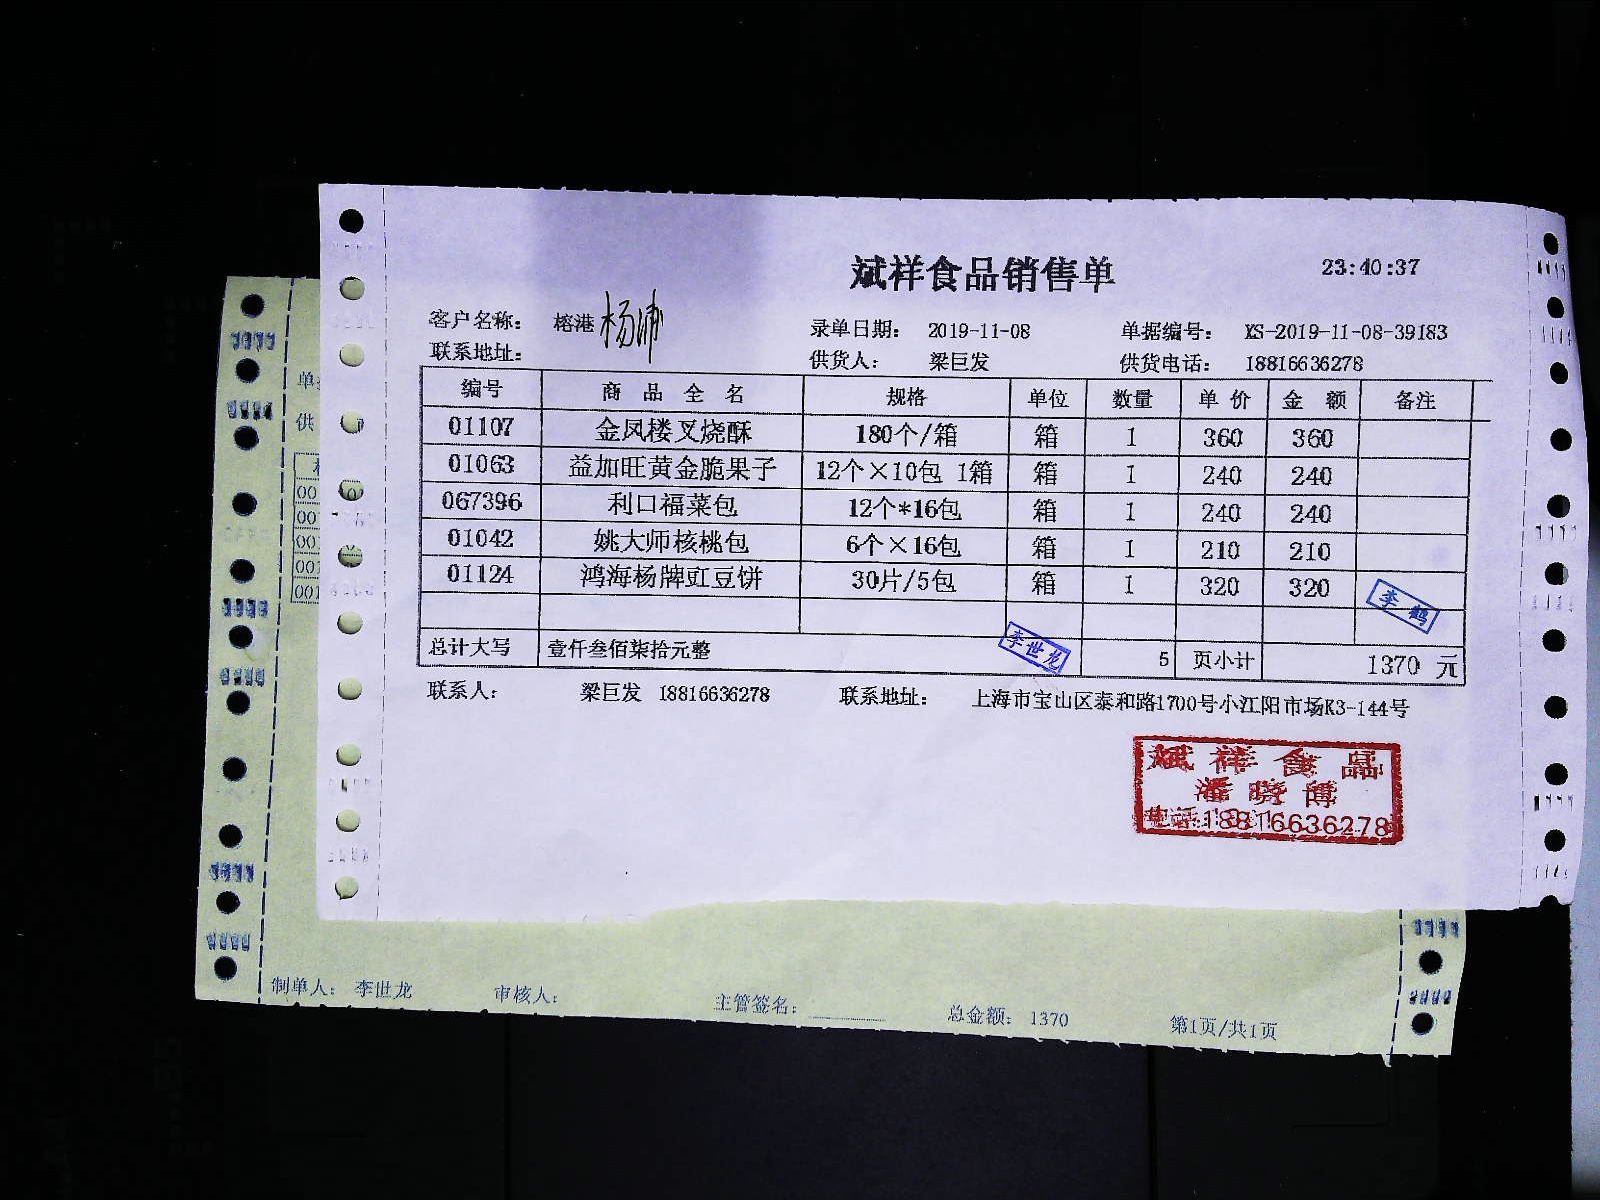 斌祥食品销售单
23:40:37
客户名称： 榕港 杨浦 录单日期： 2019-11-08 单据编号： XS-2019-11-08-39183
联系地址： 供货人： 梁巨发 供货电话： 18816636278
编号 商品全名 规格 单位 数量 单价 金额 备注
01107 金凤楼叉烧酥 180个/箱 箱 1 360 360
01063 益加旺黄金脆果子 12个×10包 1箱 箱 1 240 240
067396 利口福菜包 12个*16包 箱 1 240 240
01042 姚大师核桃包 6个×16包 箱 1 210 210
01124 鸿海杨牌豇豆饼 30片/5包 箱 1 320 320
李鹤
李世龙
总计大写 壹仟叁佰柒拾元整 5 页小计 1370 元
联系人： 梁巨发 18816636278 联系地址： 上海市宝山区泰和路1700号小江阳市场K3-144号
斌祥食品
潘晓博
电话:18816636278
单
供
制单人： 李世龙 审核人： 主管签名： 总金额： 1370 第1页/共1页